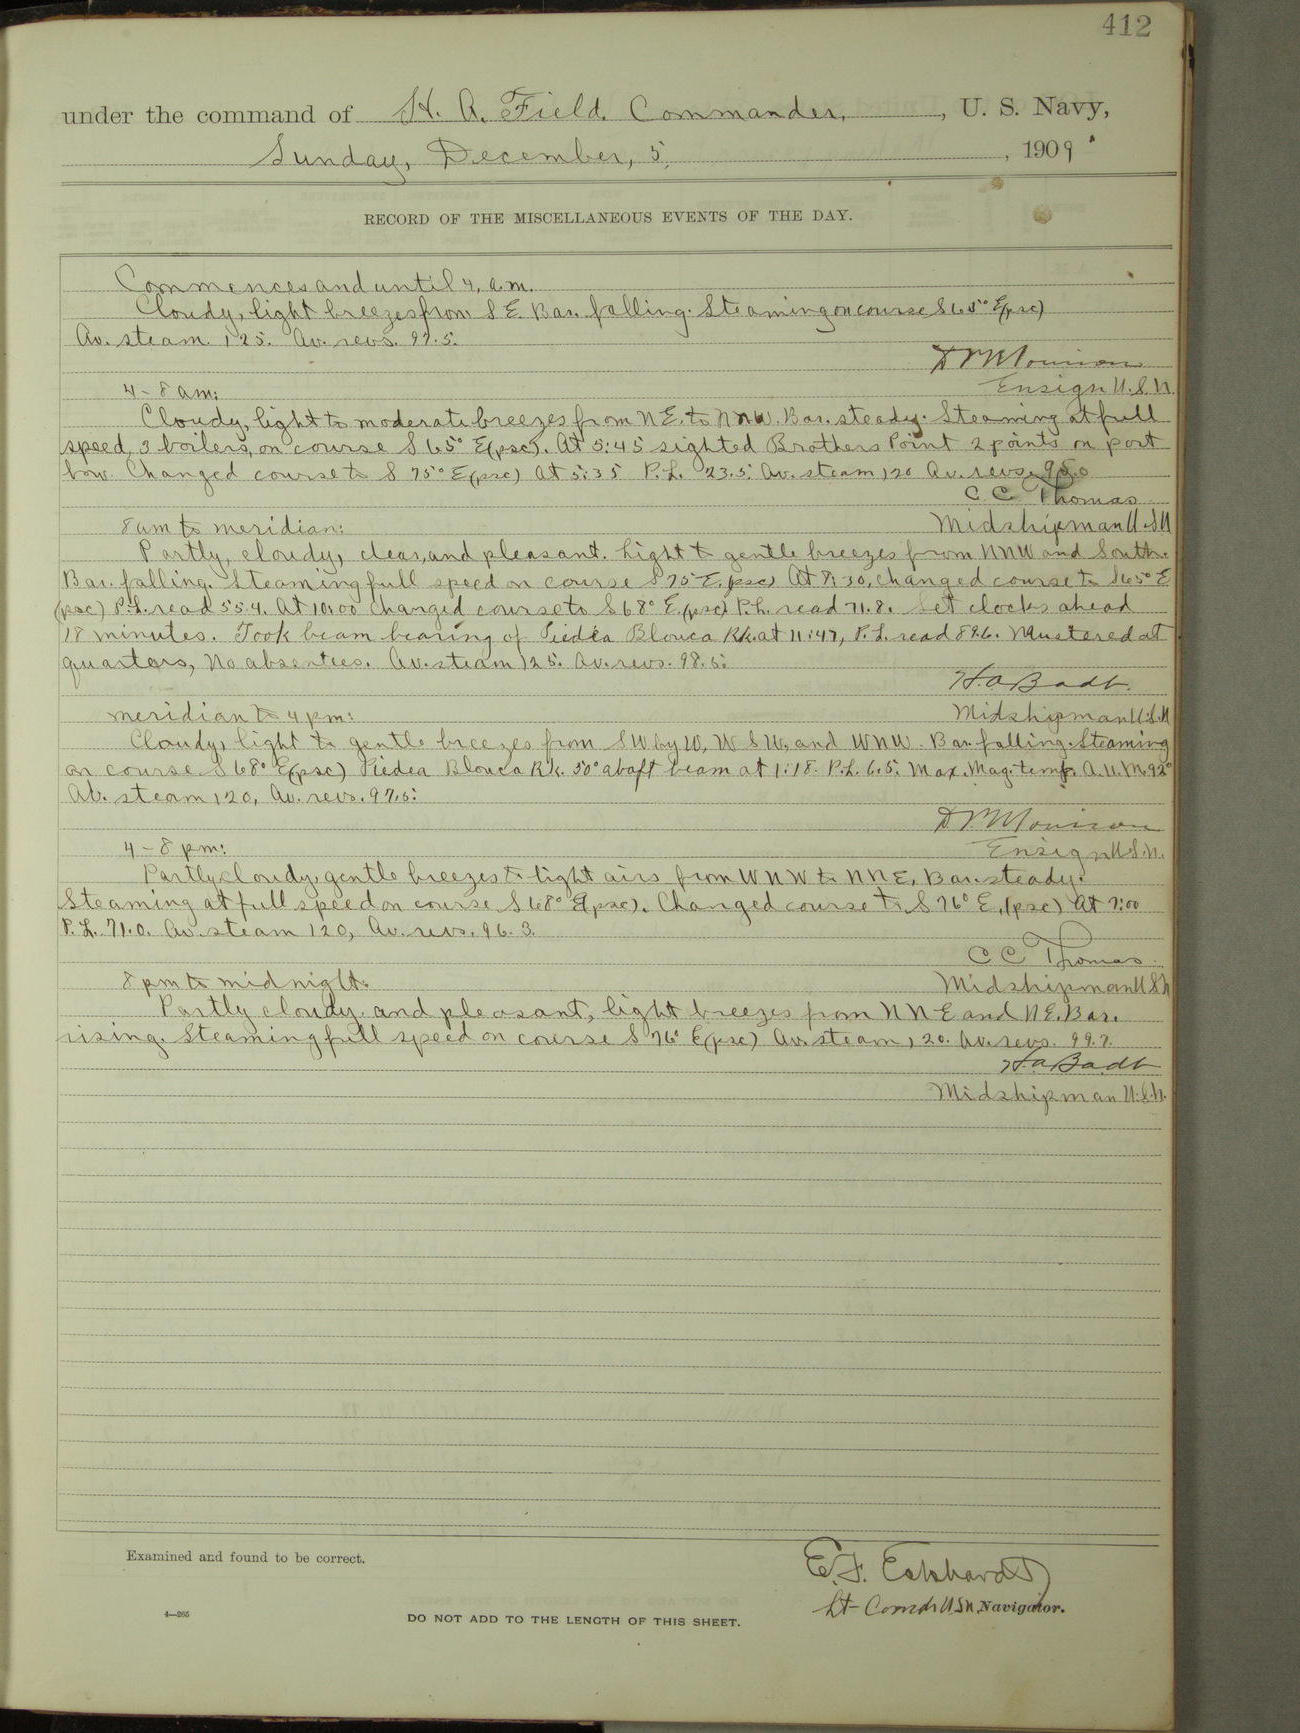 412
under the command of H. A. Field, Commander, , U. S. Navy,
Sunday, December, 5, , 1909
RECORD OF THE MISCELLANEOUS EVENTS OF THE DAY.
Commences and until 4, a.m.
Cloudy, light breezes from S E. Bar. falling. Steaming on course S 65° E (psc)
Av. steam. 125. Av. revs. 97.5.
Ensign U.S.N.
4 - 8 am:
Cloudy, light to moderate breezes from N E. to NNW. Bar. steady. Steaming at full
speed, 3 boilers, on course S 65° E (psc). At 5:45 sighted Brothers Point 2 points on port
bow. Changed course to S 75° E (psc) At 5:35 P.L. 23.5. Av. steam 120 Av. revs. 95.0
C C Thomas
8 am to meridian: Midshipman U.S.N
Partly, cloudy, clear, and pleasant. Light to gentle breezes from NNW and South.
Bar. falling. Steaming full speed on course S 75° E. (psc) At 8:30, changed course to S 65° E
(psc) P.L. read 55.4. At 10:00 changed course to S 68° E. (psc) P.L. read 71.8. Set clocks ahead
18 minutes. Took beam bearing of Piedra Blanca Rk. at 11:47, P.L. read 89.6. Mustered at
quarters, No absentees. Av. steam 125. Av. revs. 98.5.
H. A. Badt.
meridian to 4 pm: Midshipman U.S.N
Cloudy, light to gentle breezes from SW by W, W S W, and WNW. Bar. falling. Steaming
on course S 68° E (psc) Piedra Blanca Rk. 50° abaft beam at 1:18. P.L. 6.5. Max. Mag. temp. A.U.M. 92°
Av. steam 120, Av. revs. 97.5.
4 - 8 pm: Ensign U.S.N.
Partly cloudy, gentle breezes to light airs from WNW to NNE, Bar. steady.
Steaming at full speed on course S 68° E (psc). Changed course to S 76° E, (psc) At 7:00
P.L. 71.0. Av. steam 120, Av. revs. 96.3.
C C Thomas
8 pm to midnight. Midshipman U.S.N
Partly cloudy and pleasant, light breezes from N N E and N E. Bar.
rising. Steaming full speed on course S 76° E (psc) Av. steam, 120. Av. revs. 99.7.
H. A. Badt
Midshipman U.S.N.
Examined and found to be correct.
E. F. Eckhardt
Lt-Comdr USN, Navigator.
4—265
DO NOT ADD TO THE LENGTH OF THIS SHEET.